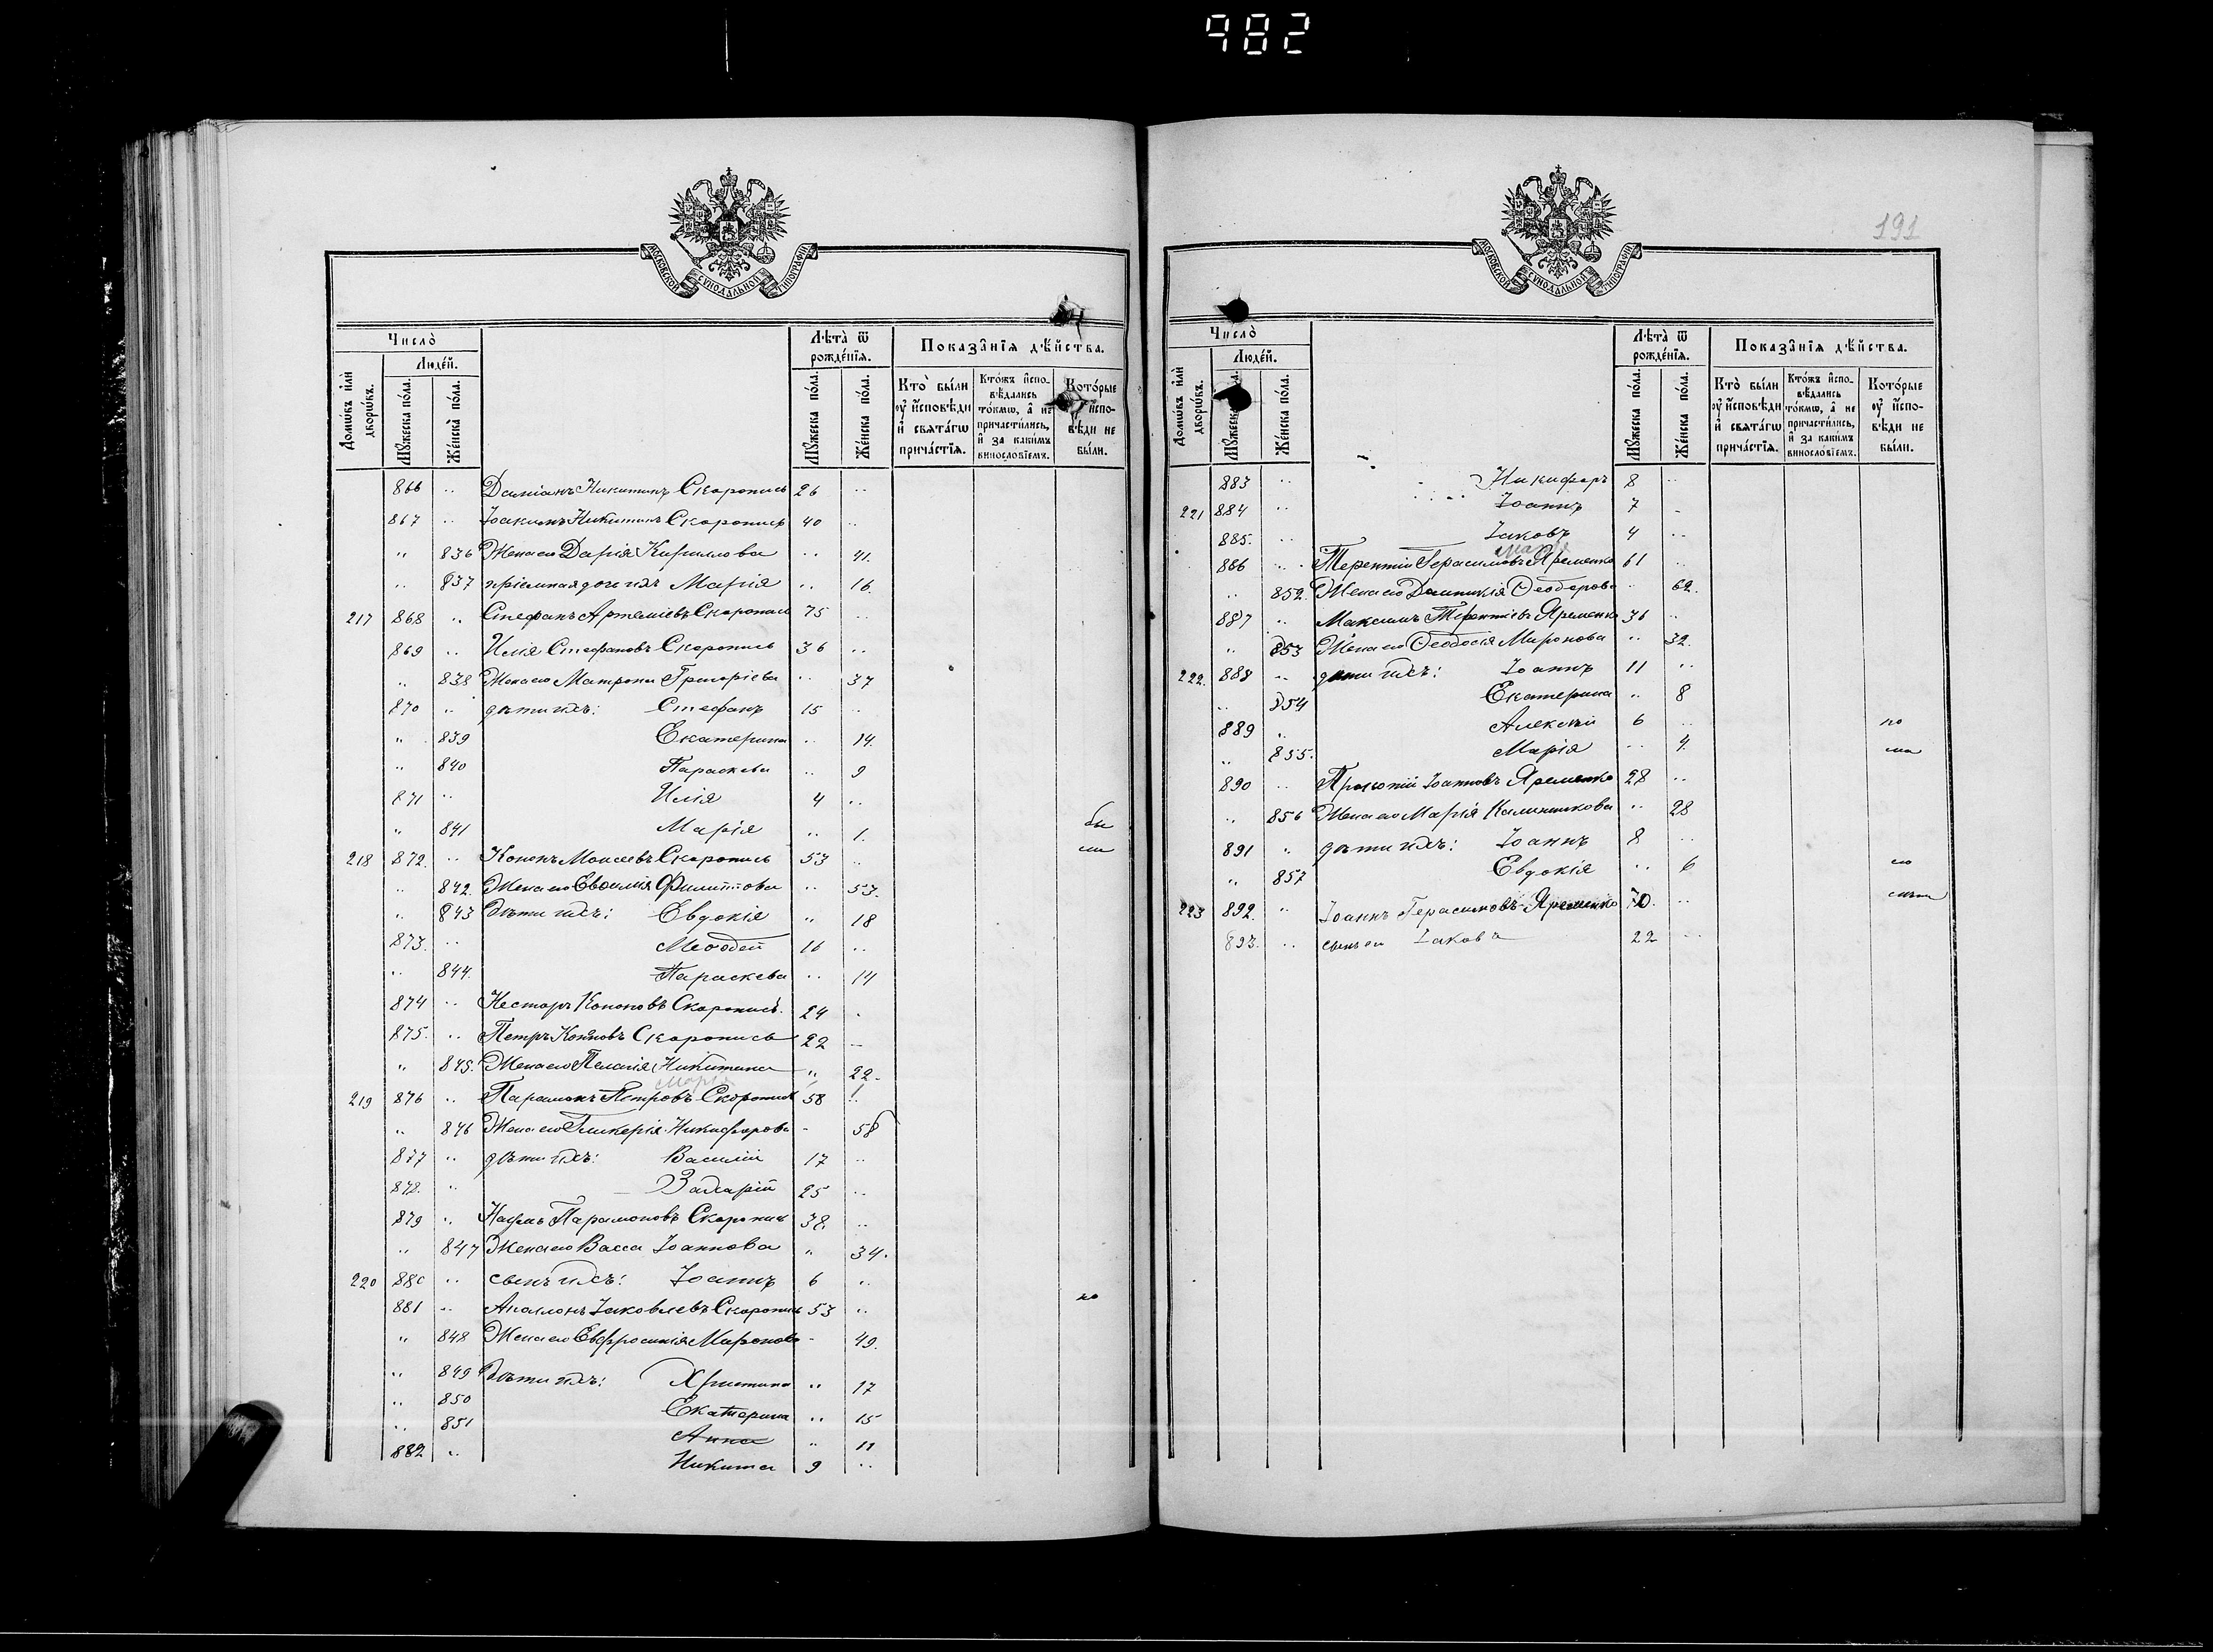 982
МОСКОВСКОЙ СѴНОДАЛЬНОЙ ТИПОГРАФІИ
Число̀
Люде́й.
Домѡ́въ и҆лѝ дворѡ́въ.
Мꙋ́жеска по́ла.
Же́нска по́ла.
Лѣ́та ѿ рожде́нїѧ.
Мꙋ́жеска по́ла.
Же́нска по́ла.
Показа̂нїѧ дѣ́йства.
Кто̀ бы́ли оу҆ и҆сповѣ́ди и҆ свѧта́гѡ прича́стїѧ.
Кто́жъ и҆спо-вѣ́дались то́кмѡ, а҆ не причасти́лись, и҆ за каки́мъ винословїемъ.
Кото́рые оу҆ и҆спо-вѣ́ди не бы́ли.
866 .. Даміанъ Никитинъ Скоропись 26 ..
867 .. Іоакимъ Никитинъ Скоропись 40 ..
.. 836 Жена его Дарія Кириллова .. 41.
.. 837 пріемная дочь ихъ Марія .. 16.
217 868 .. Стефанъ Артеміевъ Скоропись 75 ..
869 .. Илія Стефановъ Скоропись 36 ..
.. 838 Жена его Матрона Григоріева .. 37
870 .. дѣти ихъ: Стефанъ 15 ..
.. 839 Екатерина .. 14.
.. 840 Параскева .. 9
871 .. Илія 4 ..
.. 841 Марія .. 1.
218 872. .. Кононъ Моисеевъ Скоропись 53 ..
.. 842. Жена его Евѳимія Филиппова .. 53.
.. 843 Дѣти ихъ: Евдокія .. 18
873. .. Меѳодій 16 ..
.. 844. Параскева .. 14
874 .. Несторъ Кононовъ Скоропись. 24 .
875. .. Петръ Кононовъ Скоропись 22 —
.. 845. Жена его Пелагія Никитина .. 22.
Марія
219 876 .. Парамонъ Петровъ Скоропись 58
.. 846 Жена его Гликерія Никифорова - 58
877 .. дѣти ихъ: Василій 17 ..
878. .. Захарій 25 ..
879 .. Наумъ Парамоновъ Скоропись 38. ..
.. 847 Жена его Васса Іоаннова .. 34.
220 880 .. сынъ ихъ: Іоаннъ 6 ..
881 .. Аполонъ Іаковлевъ Скоропись 53 ..
.. 848 Жена его Евфросинія Миронова - 49.
.. 849 Дѣти ихъ: Христина .. 17
.. 850 Екатерина .. 15
.. 851 Анна .. 11
882 .. Никита 9 ..
191
МОСКОВСКОЙ СѴНОДАЛЬНОЙ ТИПОГРАФІИ
Число̀
Люде́й.
Домѡ́въ и҆лѝ дворѡ́въ.
Мꙋ́жеска
Же́нска по́ла.
Лѣ́та ѿ рожде́нїѧ.
Мꙋ́жеска по́ла.
Же́нска по́ла.
Показа̂нїѧ дѣ́йства.
Кто̀ бы́ли оу҆ и҆сповѣ́ди и҆ свѧта́гѡ прича́стїѧ.
Кто́жъ и҆спо-вѣ́дались то́кмѡ, а҆ не причасти́лись, и҆ за каки́мъ винословїемъ.
Кото́рые оу҆ и҆спо-вѣ́ди не бы́ли.
883 .. Никифоръ 8 ..
221 884 .. Іоаннъ 7 -
885. .. Іаковъ 4 ..
886 .. Терентій Герасимовъ Яременко 61 ..
.. 852. Жена его Домникія Ѳеодорова .. 62.
887 .. Максимъ Терентіевъ Яременко 36 ..
.. 853 Жена его Ѳеодосія Миронова .. 32.
222. 888 .. дѣти ихъ: Іоаннъ 11 ..
.. 854 Екатерина .. 8
889 .. Алексѣй 6 ..
.. 855. Марія .. 4.
890 .. Прокопій Іоанновъ Яременко 28 ..
.. 856 Жена его Марія Калинникова .. 28
891 .. дѣти ихъ: Іоаннъ 8 ..
.. 857 Евдокія .. 6
223 892. .. Іоаннъ Герасимовъ Яременко 70. ..
893. .. сынъ его Іаковъ 22 ..